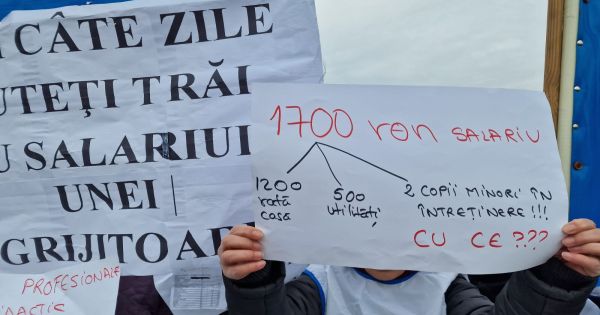 CÂTE ZILE
UTEȚI TRĂI
U SALARIUL
UNEI
GRIJITOARE
PROFESIONALE
DACTIC
1700 ron SALARIU
1200 rată casă
500 utilități
2 COPII MINORI ÎN ÎNTREȚINERE !!!
CU CE ???